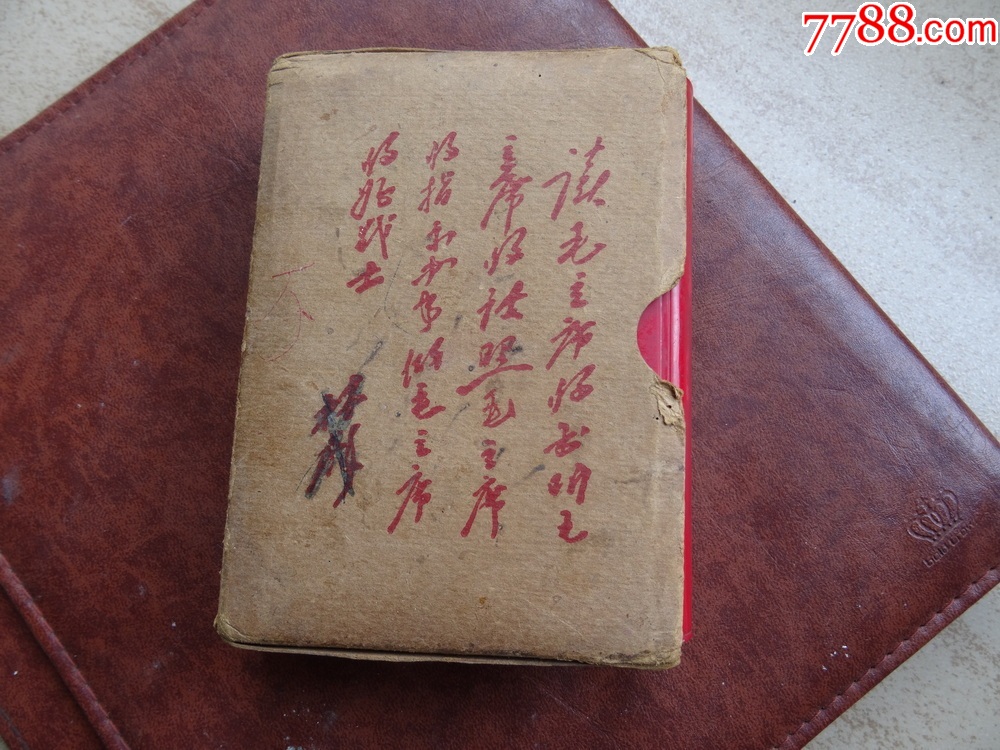 读毛主席的书听毛
主席的话照毛主席
的指示办事做毛主席
的好战士
林彪
7788.com